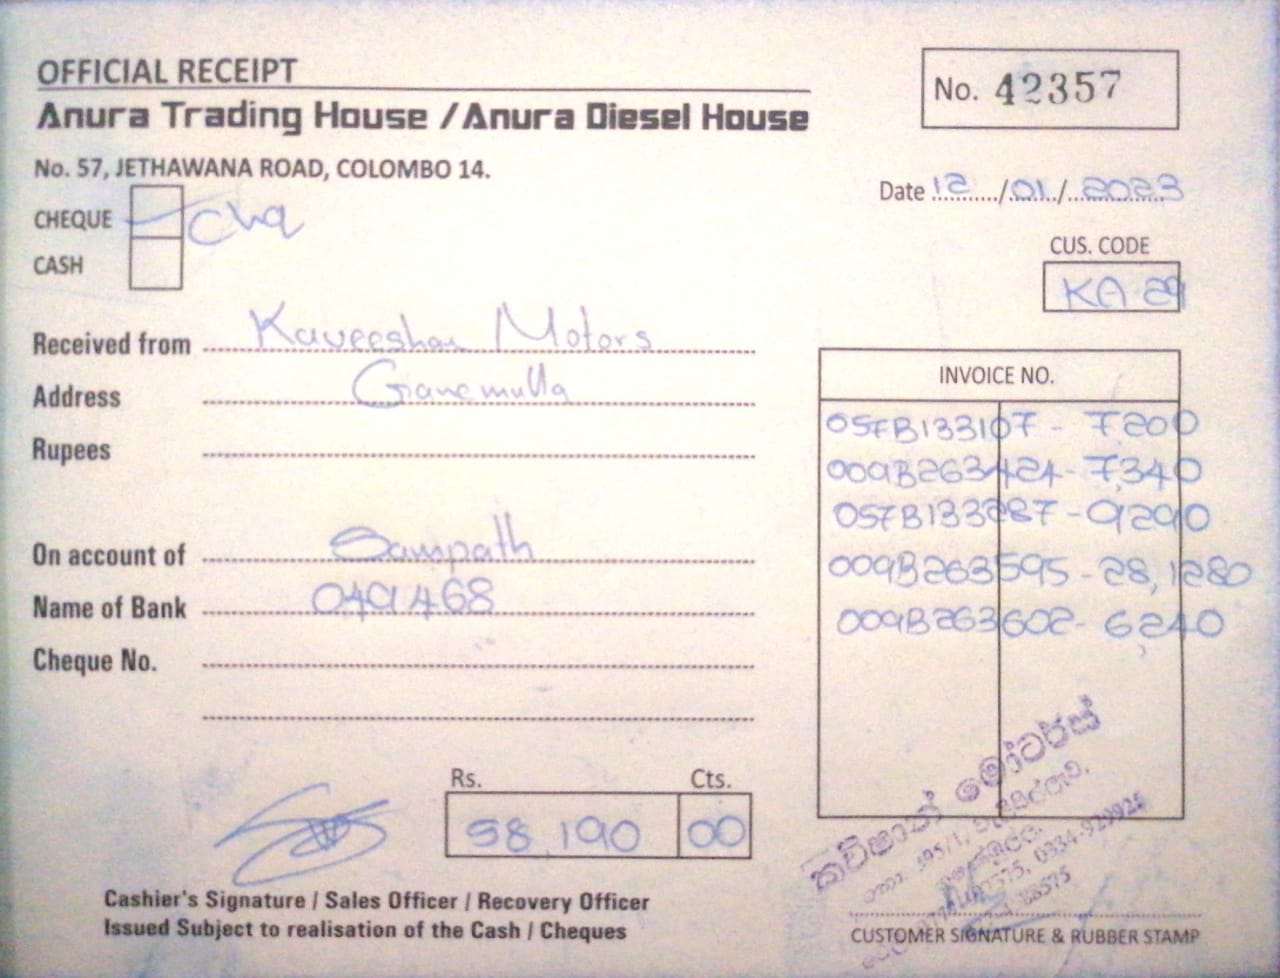 OFFICIAL RECEIPT
Anura Trading House / Anura Diesel House
No. 42357
No. 57, JETHAWANA ROAD, COLOMBO 14.
Date 12/01/2023
CHEQUE Chq
CASH
CUS. CODE
KA 29
Received from Kaveeshan Motors
Address Ganemulla
Rupees
INVOICE NO.
057B133107 - 7200
009B263424 - 7,340
057B133287 - 9290
009B263595 - 28,1280
009B263602 - 6240
On account of Sampath
Name of Bank 0491468
Cheque No.
Rs. Cts.
58,190 00
කවිෂාන් මෝටර්ස්
0334-929925
Cashier's Signature / Sales Officer / Recovery Officer
Issued Subject to realisation of the Cash / Cheques
CUSTOMER SIGNATURE & RUBBER STAMP